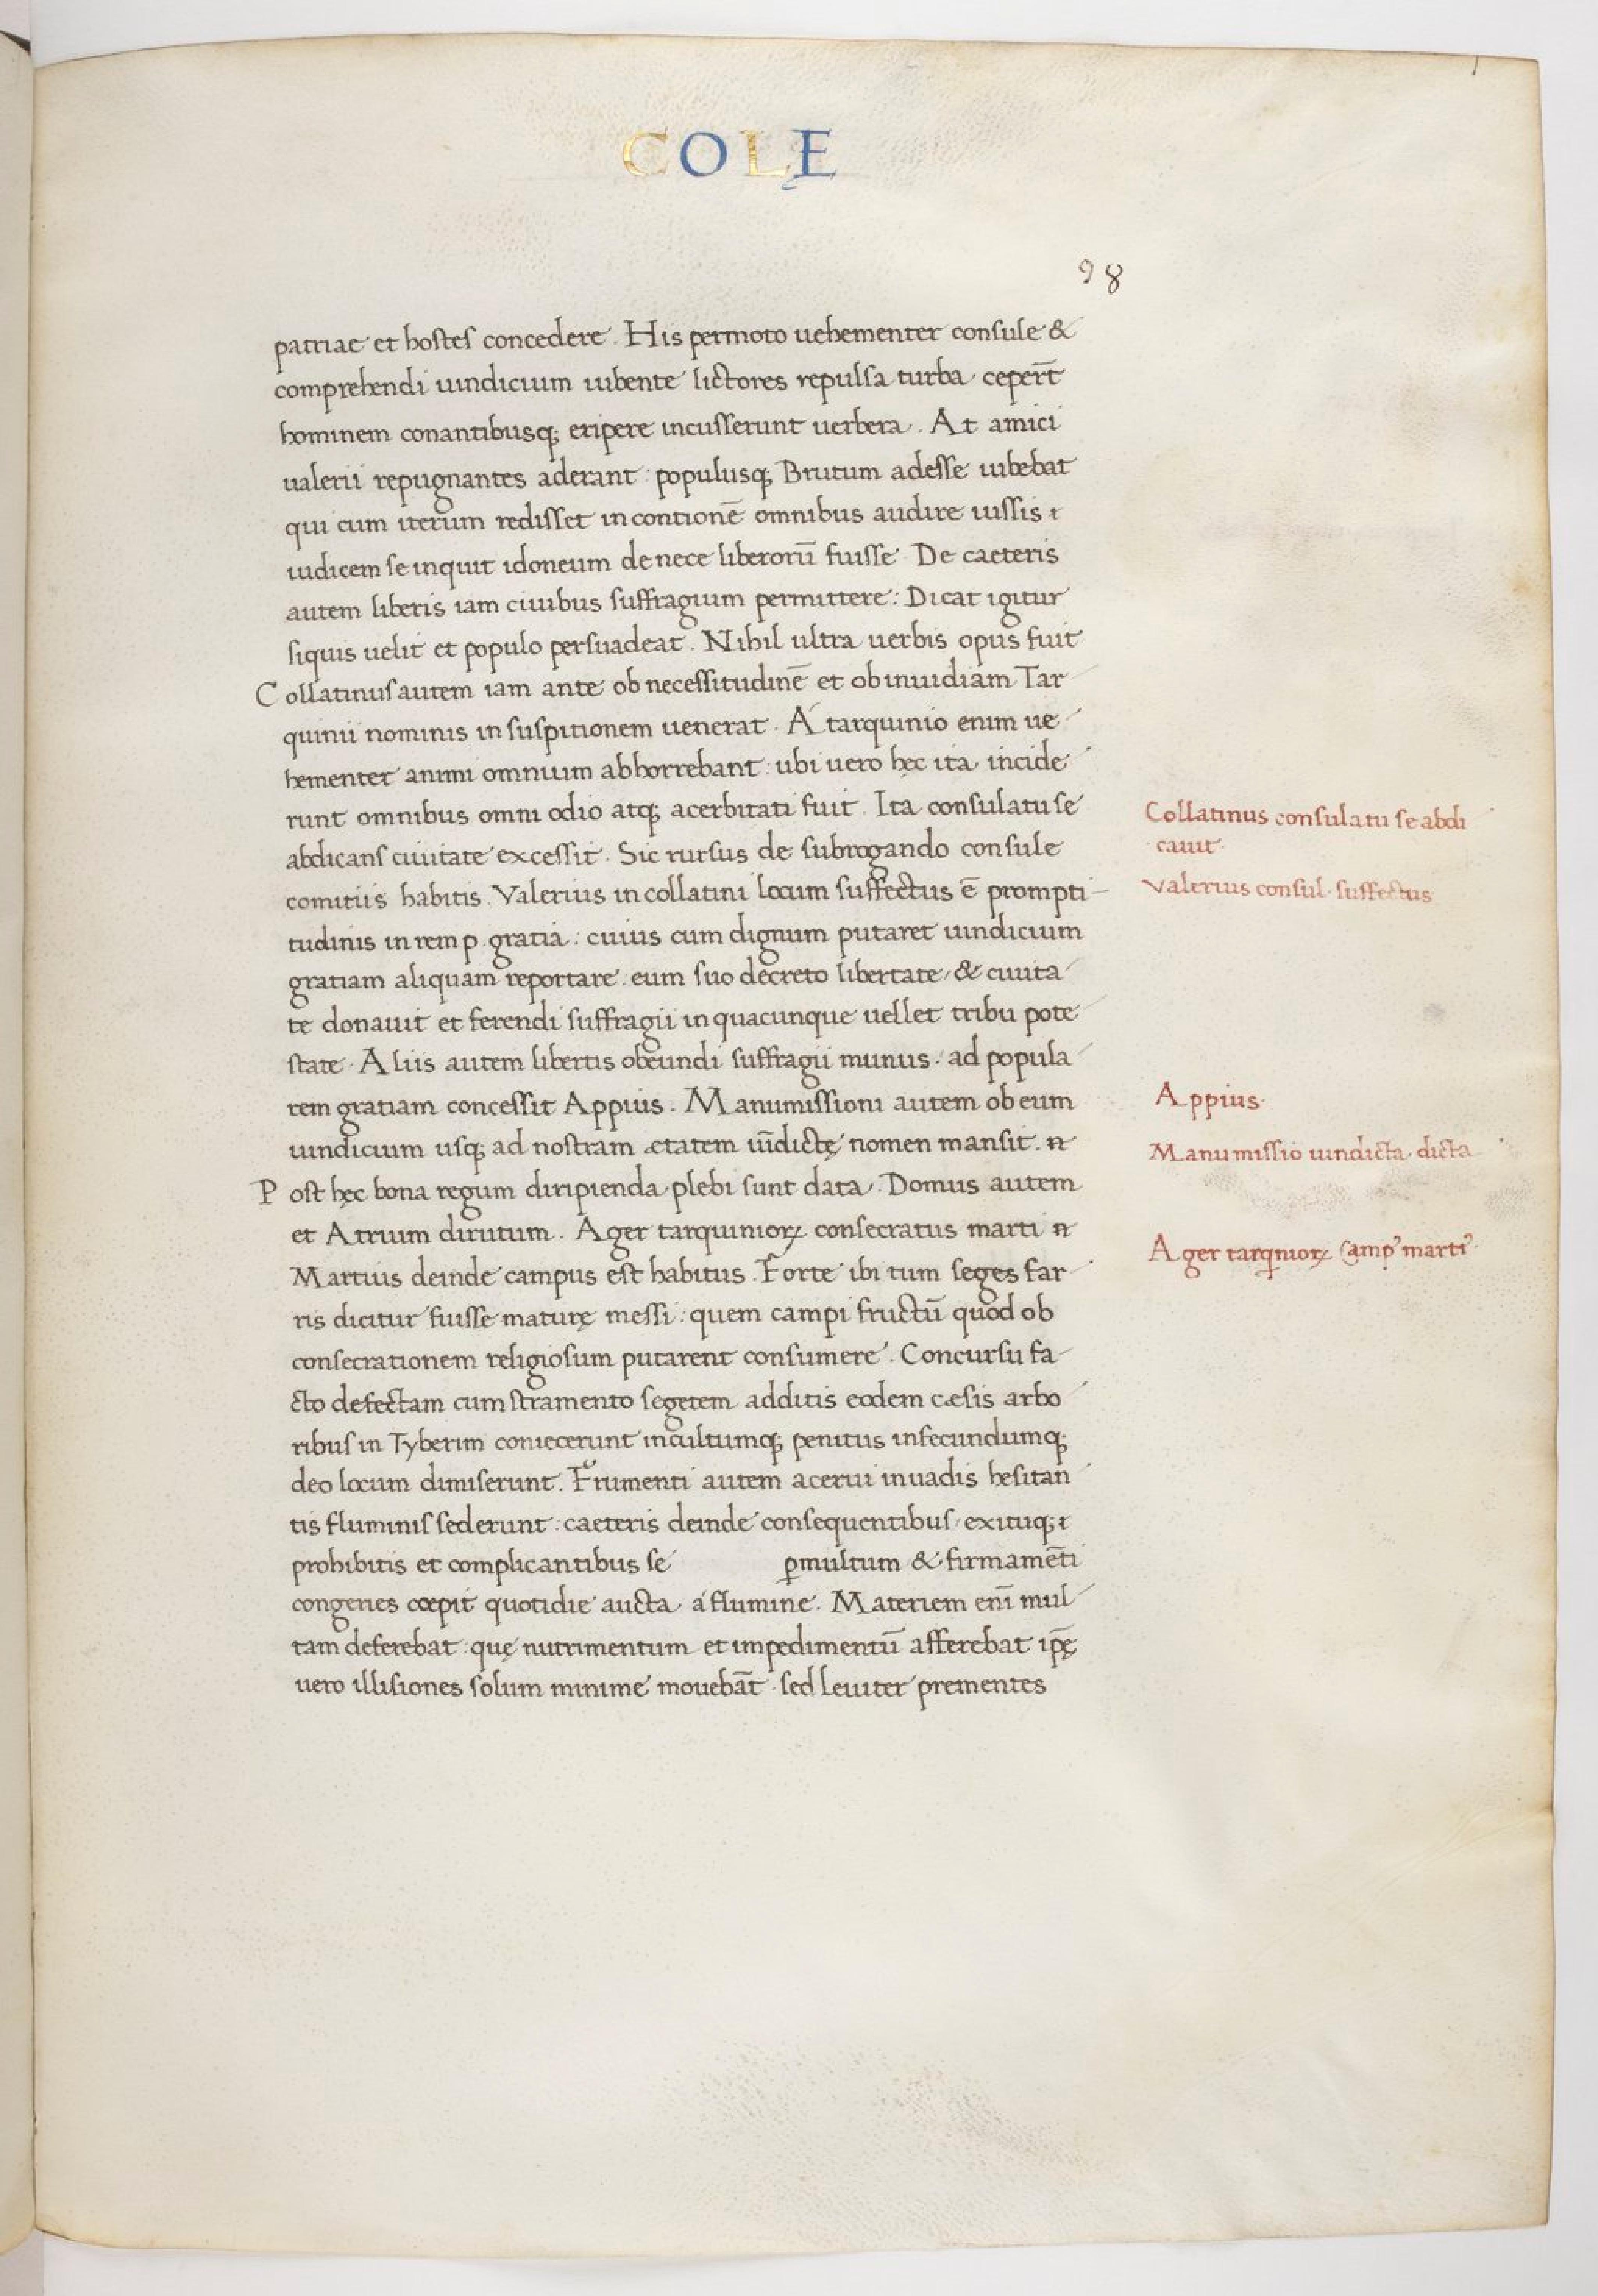 COLĘ
98
patriae et hostes concedere. His permoto uehementer consule &
comprehendi uindicium iubente lictores repulsa turba ceper̄t
hominem conantibusq; eripere incusserunt uerbera. At amici
ualerii repugnantes aderant: populusq; Brutum adesse iubebat
qui cum iterum redisset in contionē omnibus audire iussis
iudicem se inquit idoneum de nece liberorū fuisse. De caeteris
autem liberis iam ciuibus suffragium permittere: Dicat igitur
siquis uelit et populo persuadeat. Nihil ultra uerbis opus fuit
Collatinus autem iam ante ob necessitudinē et ob inuidiam Tar
quinii nominis in suspitionem uenerat. Á tarquinio enim ue
hementer animi omnium abhorrebant: ubi uero hęc ita incide
runt omnibus omni odio atq; acerbitati fuit. Ita consulatu se
abdicans ciuitate excessit. Sic rursus de subrogando consule
comitiis habitis. Valerius in collatini locum suffectus ē prompti-
tudinis in rem p. gratia: cuius cum dignum putaret uindicium
gratiam aliquam reportare eum suo decreto libertate & ciuita
te donauit et ferendi suffragii in quacunque uellet tribu pote
state. Aliis autem libertis obeundi suffragii munus ad popula
rem gratiam concessit Appius. Manumissioni autem ob eum
uindicium usq; ad nostram ætatem uīdictę nomen mansit.
Post hęc bona regum diripienda plebi sunt data. Domus autem
et Atrium dirutum. Ager tarquinioꝝ consecratus marti
Martius deinde campus est habitus. Forte ibi tum seges far
ris dicitur fuisse maturę messi: quem campi fructū quod ob
consecrationem religiosum putarent consumere. Concursu fa
cto defectam cum stramento segetem additis eodem cæsis arbo
ribus in Tyberim coniecerunt incultumq; penitus infecundumq;
deo locum dimiserunt. Frumenti autem acerui in uadis hesitan
tis fluminis sederunt: caeteris deinde consequentibus exituq;
prohibitis et complicantibus se ꝑmultum & firmamēti
congeries cœpit quotidie aucta á flumine. Materiem enī mul
tam deferebat: quę nutrimentum et impedimentū afferebat ip̄ę
uero illisiones solum minime mouebāt sed leuiter prementes
Collatinus consulatu se abdi
cauit.
Valerius consul suffectus
Appius.
Manumissio uindicta dicta
Ager tarq̇nioꝝ Camp' marti'